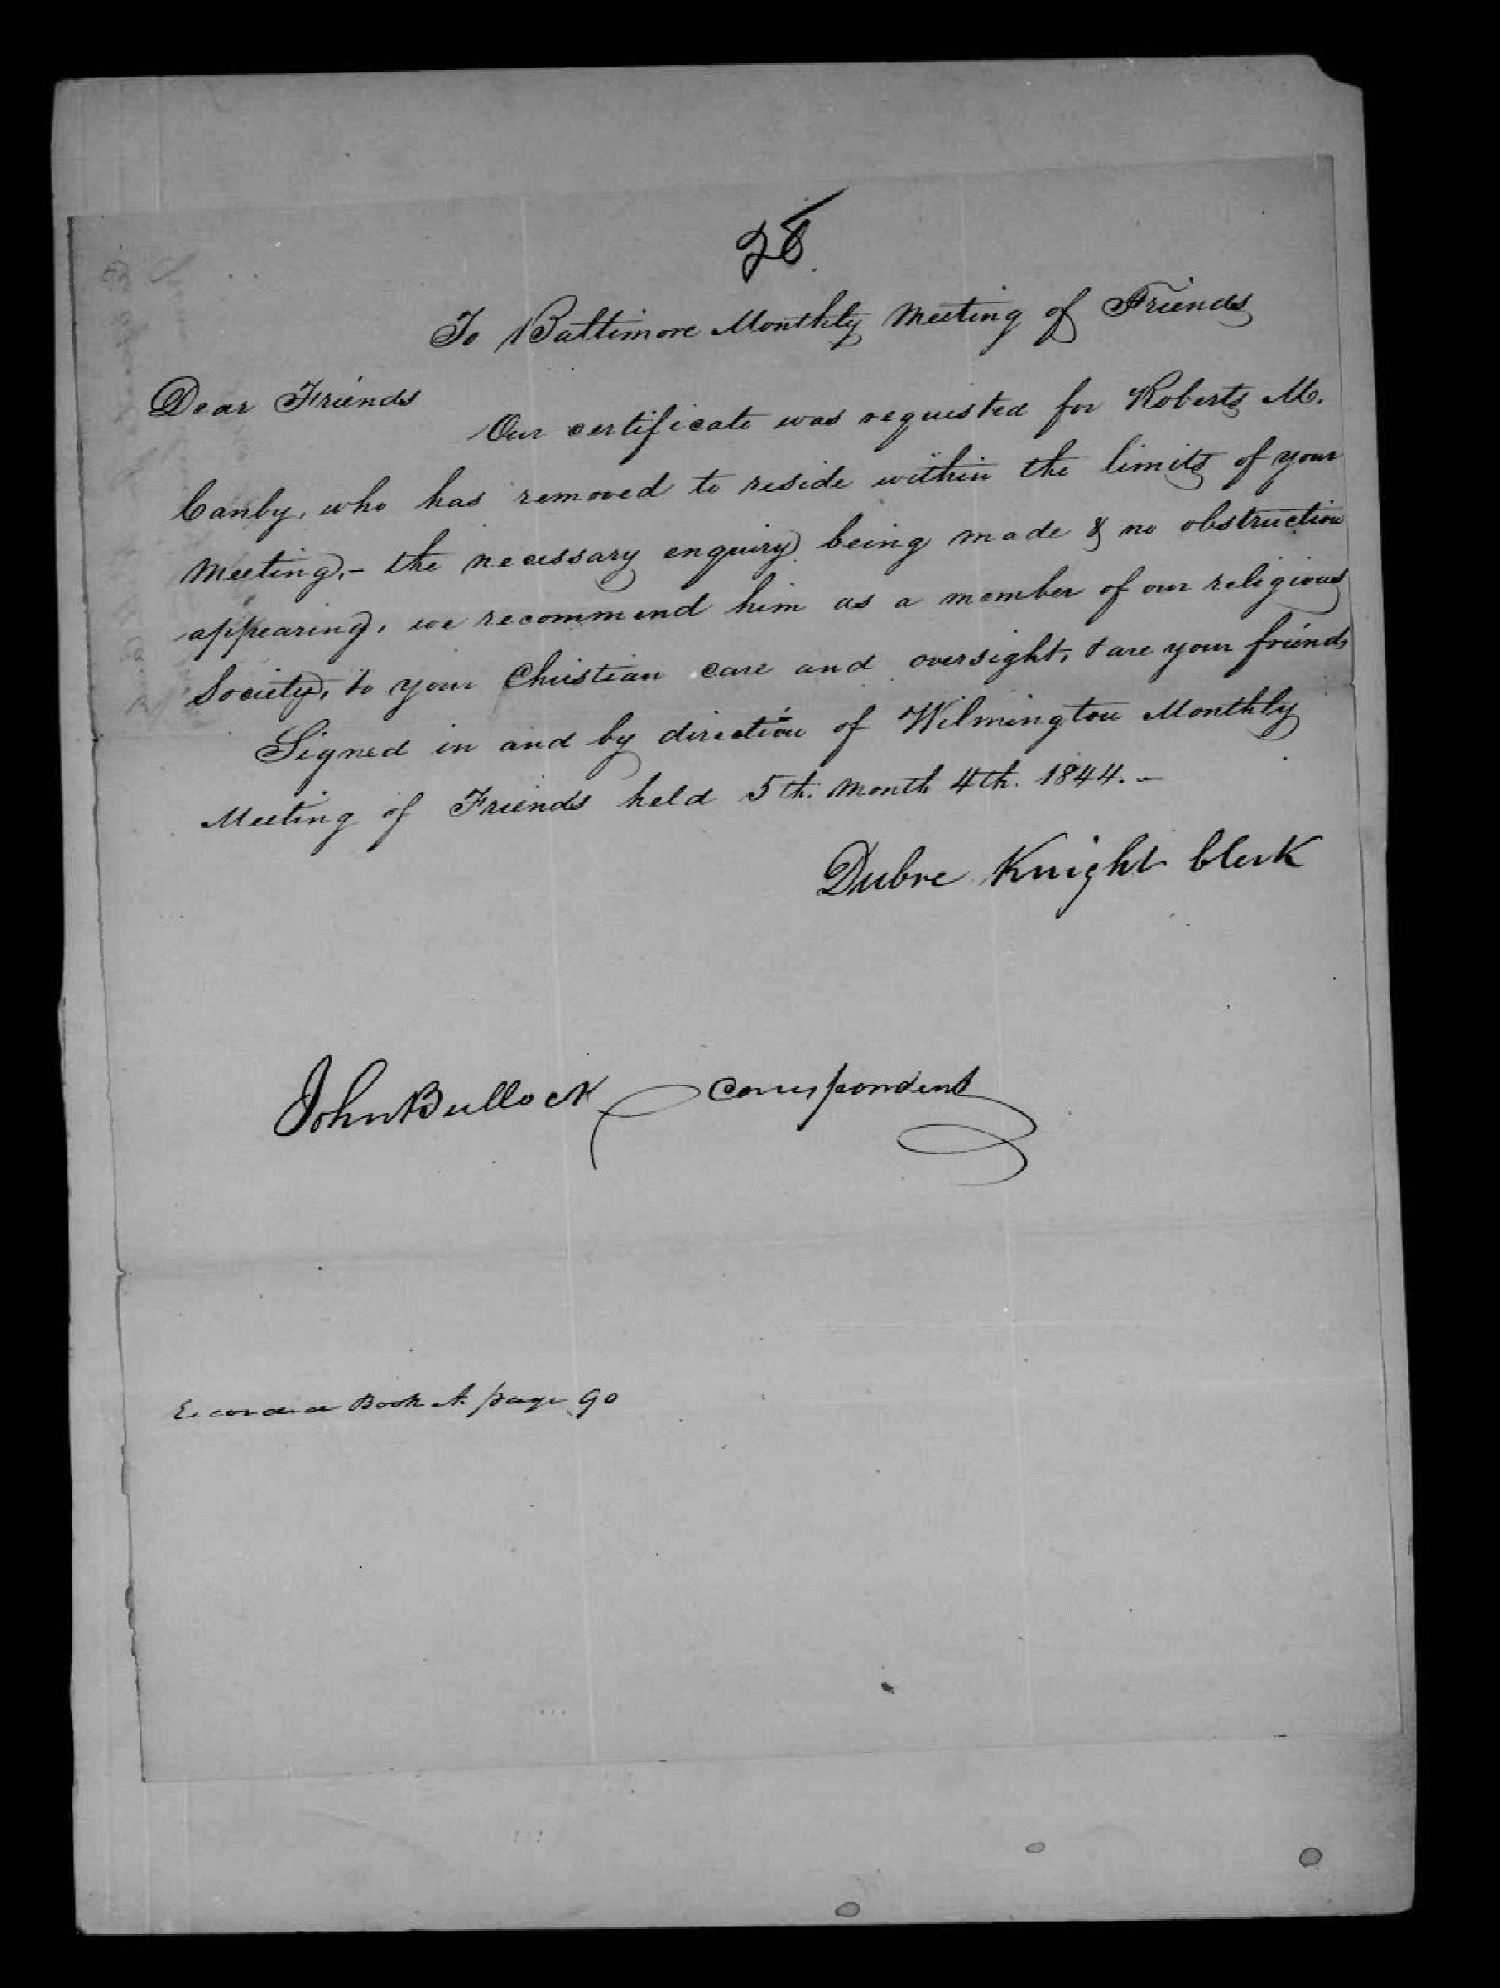 28
To Baltimore Monthly Meeting of Friends
Dear Friends
Our certificate was requested for Roberts M.
Canby, who has removed to reside within the limits of your
Meeting,- the necessary enquiry being made & no obstruction
appearing, we recommend him as a member of our religious
Society, to your Christian care and oversight, & are your friends
Signed in and by direction of Wilmington Monthly
Meeting of Friends held 5th. Month 4th. 1844.-
Dubre Knight Clerk
John Bullock Correspondent
Book A page 90